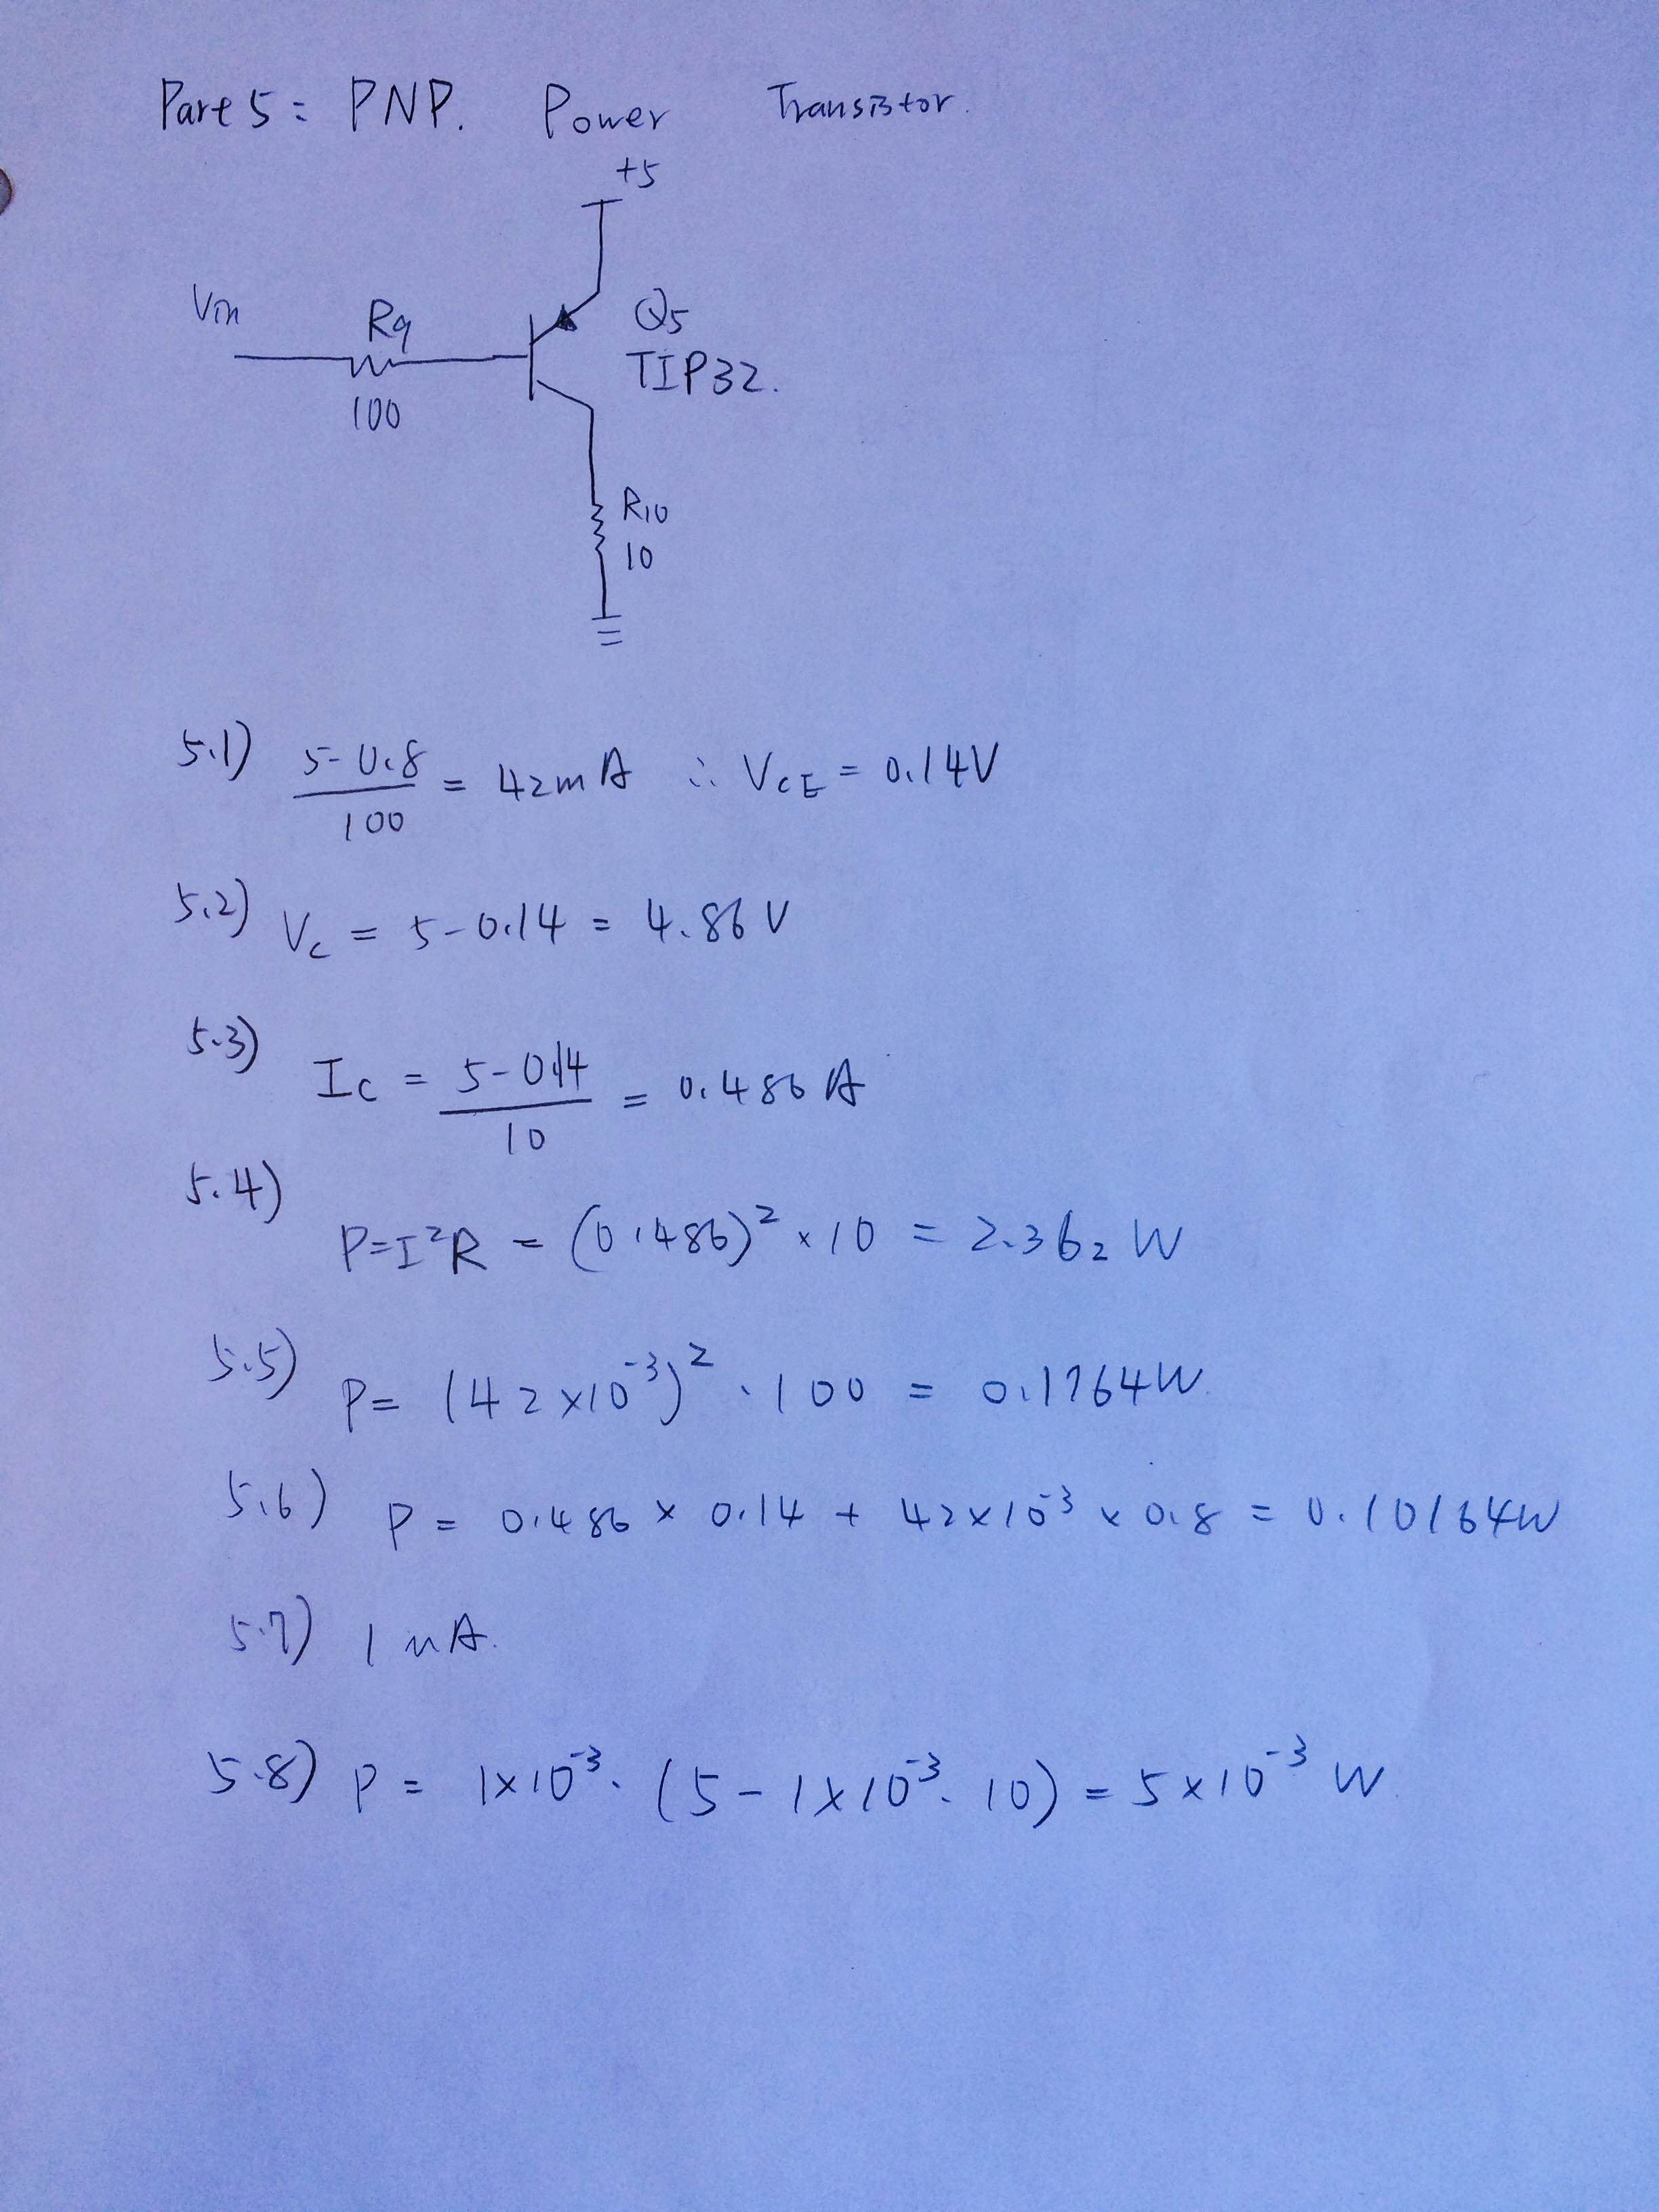 Part 5: PNP. Power Transistor.
+5
Vin
R9
100
Q5
TIP32.
R10
10
5.1) 5-0.8/100 = 42mA ∴ VCE = 0.14V
5.2) Vc = 5-0.14 = 4.86V
5.3) Ic = 5-0.14/10 = 0.486A
5.4) P=I²R = (0.486)² × 10 = 2.362 W
5.5) P= (42×10⁻³)² · 100 = 0.1764W.
5.6) P = 0.486 × 0.14 + 42×10⁻³ × 0.8 = 0.10164W
5.7) 1 mA.
5.8) P = 1×10⁻³ · (5 - 1×10⁻³ · 10) = 5×10⁻³ W.